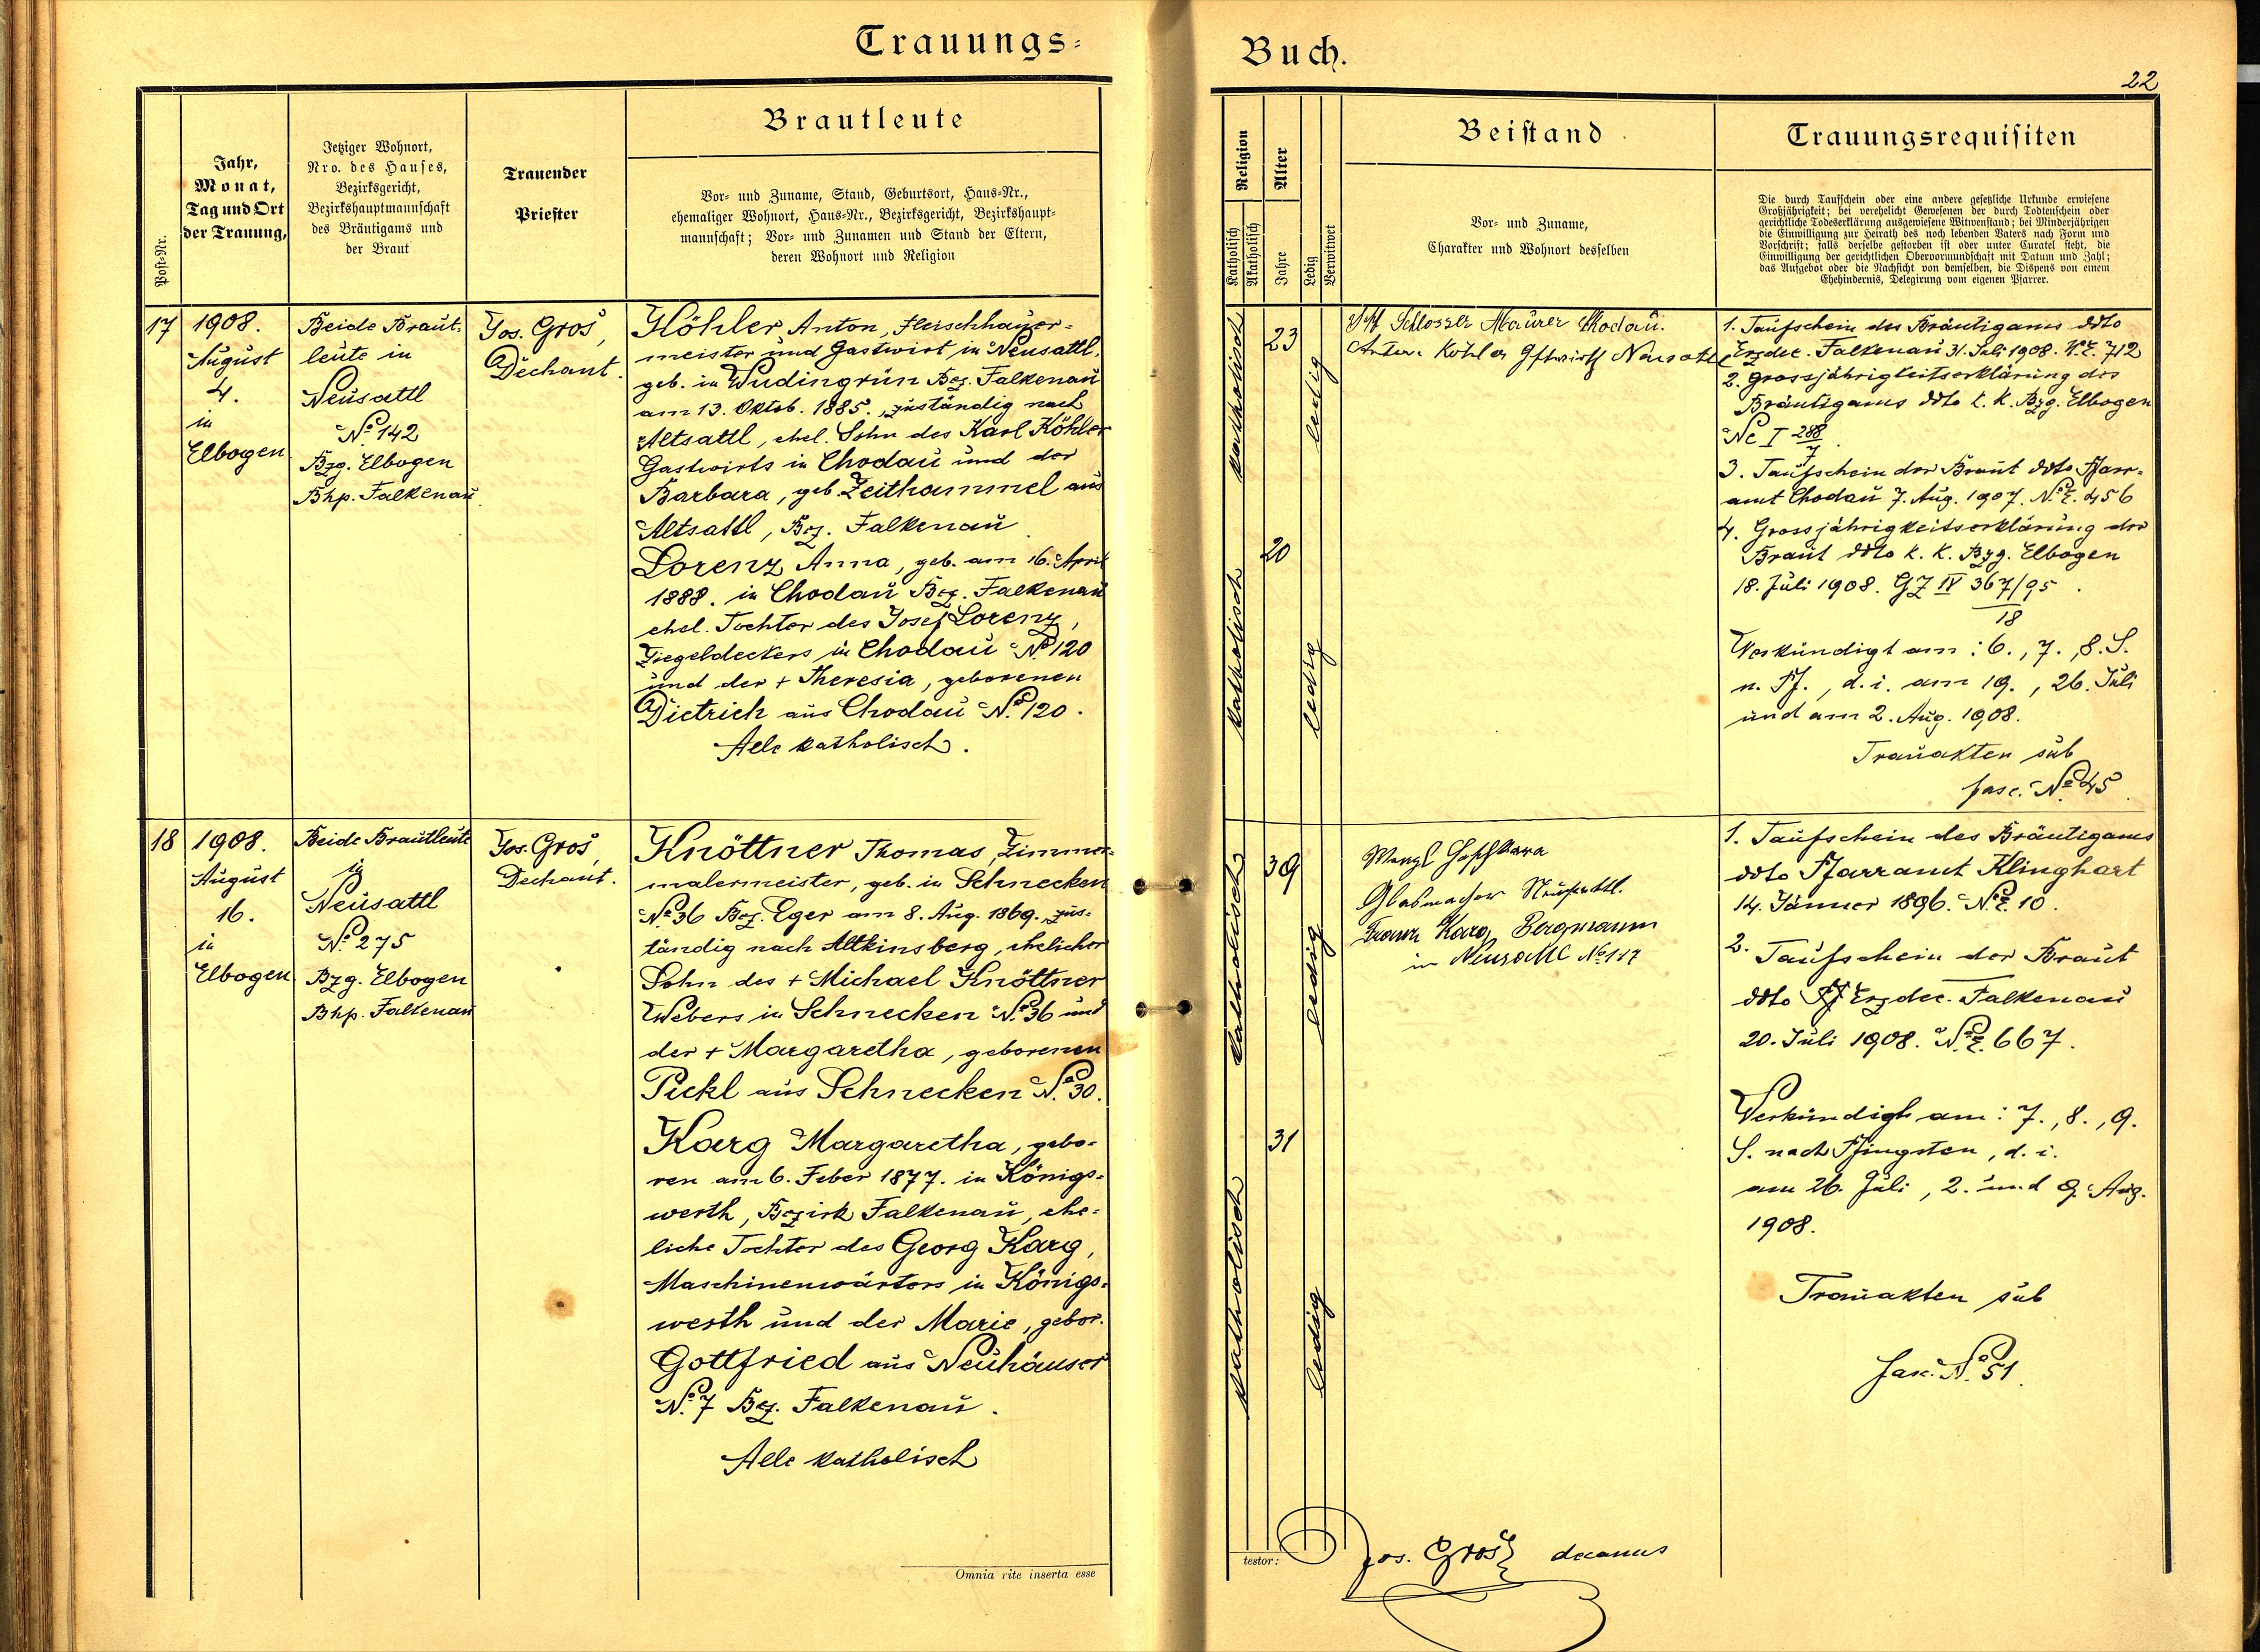 Trauungs=
Buch.
22
Post-Nr.
Jahr,
Monat,
Tag und Ort
der Trauung,
Jetziger Wohnort,
Nro. des Hauses,
Bezirksgericht,
Bezirkshauptmannschaft
des Bräutigams und
der Braut
Trauender
Priester
Brautleute
Vor- und Zuname, Stand, Geburtsort, Haus-Nr.,
ehemaliger Wohnort, Haus-Nr., Bezirksgericht, Bezirkshaupt-
mannschaft; Vor- und Zunamen und Stand der Eltern,
deren Wohnort und Religion
Religion
Katholisch
Akatholisch
Alter
Jahre
Ledig
Verwitwet
Beistand
Vor- und Zuname,
Charakter und Wohnort desselben
Trauungsrequisiten
Die durch Taufschein oder eine andere gesetzliche Urkunde erwiesene
Großjährigkeit; bei verehelicht Gewesenen der durch Todtenschein oder
gerichtliche Todeserklärung ausgewiesene Witwenstand; bei Minderjährigen
die Einwilligung zur Heirath des noch lebenden Vaters nach Form und
Vorschrift; falls derselbe gestorben ist oder unter Curatel steht, die
Einwilligung der gerichtlichen Obervormundschaft mit Datum und Zahl;
das Aufgebot oder die Nachsicht von demselben, die Dispens von einem
Ehehindernis, Delegirung vom eigenen Pfarrer.
17
1908.
August
4.
in
Elbogen
Beide Braut-
leute in
Neusattl
No 142
Bzg. Elbogen
Bhp. Falkenau
Jos. Groš,
Dechant.
Köhler Anton, Fleischhauer-
meister und Gastwirt in Neusattl,
geb. in Wudingrün Bez. Falkenau
am 13. Oktob. 1885., zuständig nach
Altsattl, ehel. Sohn des Karl Köhler
Gastwirts in Chodau und der
Barbara, geb. Zeithammel aus
Altsattl, Bez. Falkenau
Lorenz Anna, geb. am 16. April
1888. in Chodau Bez. Falkenau
ehel. Tochter des Josef Lorenz,
Ziegeldeckers in Chodau No 120
und der + Theresia, geborenen
Dietrich aus Chodau No 120.
Alle katholisch.
katholisch
23
ledig
katholisch
20
ledig
Schlosser Maurer Chodau.
Anton Köhler Gftwirth Neusattl
1. Taufschein des Bräutigams ddto
Erzdec. Falkenau 31. Juli 1908. N.E. 712
2. Grossjährigkeitserklärung des
Bräutigams ddto k. k. Bzg. Elbogen
Nc I 288/7.
3. Taufschein der Braut ddto Pfarr-
amt Chodau 7. Aug. 1907. N.E. 456
4. Grossjährigkeitserklärung der
Braut ddto k. k. Bzg. Elbogen
18. Juli 1908. GZ IV 367/95.
18
Verkündigt am: 6., 7., 8. S.
n. Pf., d. i. am 19., 26. Juli
und am 2. Aug. 1908.
Trauakten sub
fasc. No 45.
18
1908.
August
16.
in
Elbogen
Beide Brautleute
in
Neusattl
No 275
Bzg. Elbogen
Bhp. Falkenau
Jos. Groš,
Dechant.
Knöttner Thomas, Zimmer-
malermeister, geb. in Schnecken
No 36 Bez. Eger am 8. Aug. 1869. zus-
tändig nach Altkinsberg, ehelicher
Sohn des + Michael Knöttner
Webers in Schnecken No 36 und
der + Margaretha, geborenen
Pickl aus Schnecken No 30.
Karg Margaretha, gebo-
ren am 6. Feber 1877. in Königs-
werth, Bezirk Falkenau, ehe-
liche Tochter des Georg Karg,
Maschinenwärters in Königs-
werth und der Marie, gebor.
Gottfried aus Neuhäuser
No 7 Bez. Falkenau.
Alle katholisch
katholisch
39
ledig
katholisch
31
ledig
Glasmacher Neusattl.
Franz Karg, Bergmann
in Neusattl No 117
1. Taufschein des Bräutigams
ddto Pfarramt Klinghart
14. Jänner 1896. N.E. 10.
2. Taufschein der Braut
ddto Pf Erzdec. Falkenau
20. Juli 1908. N.E. 667.
Verkündigt am: 7., 8., 9.
S. nach Pfingsten, d. i.
am 26. Juli, 2. und 9. Aug.
1908.
Trauakten sub
fasc. No 51.
Omnia rite inserta esse
testor:
Jos. Groš decanus